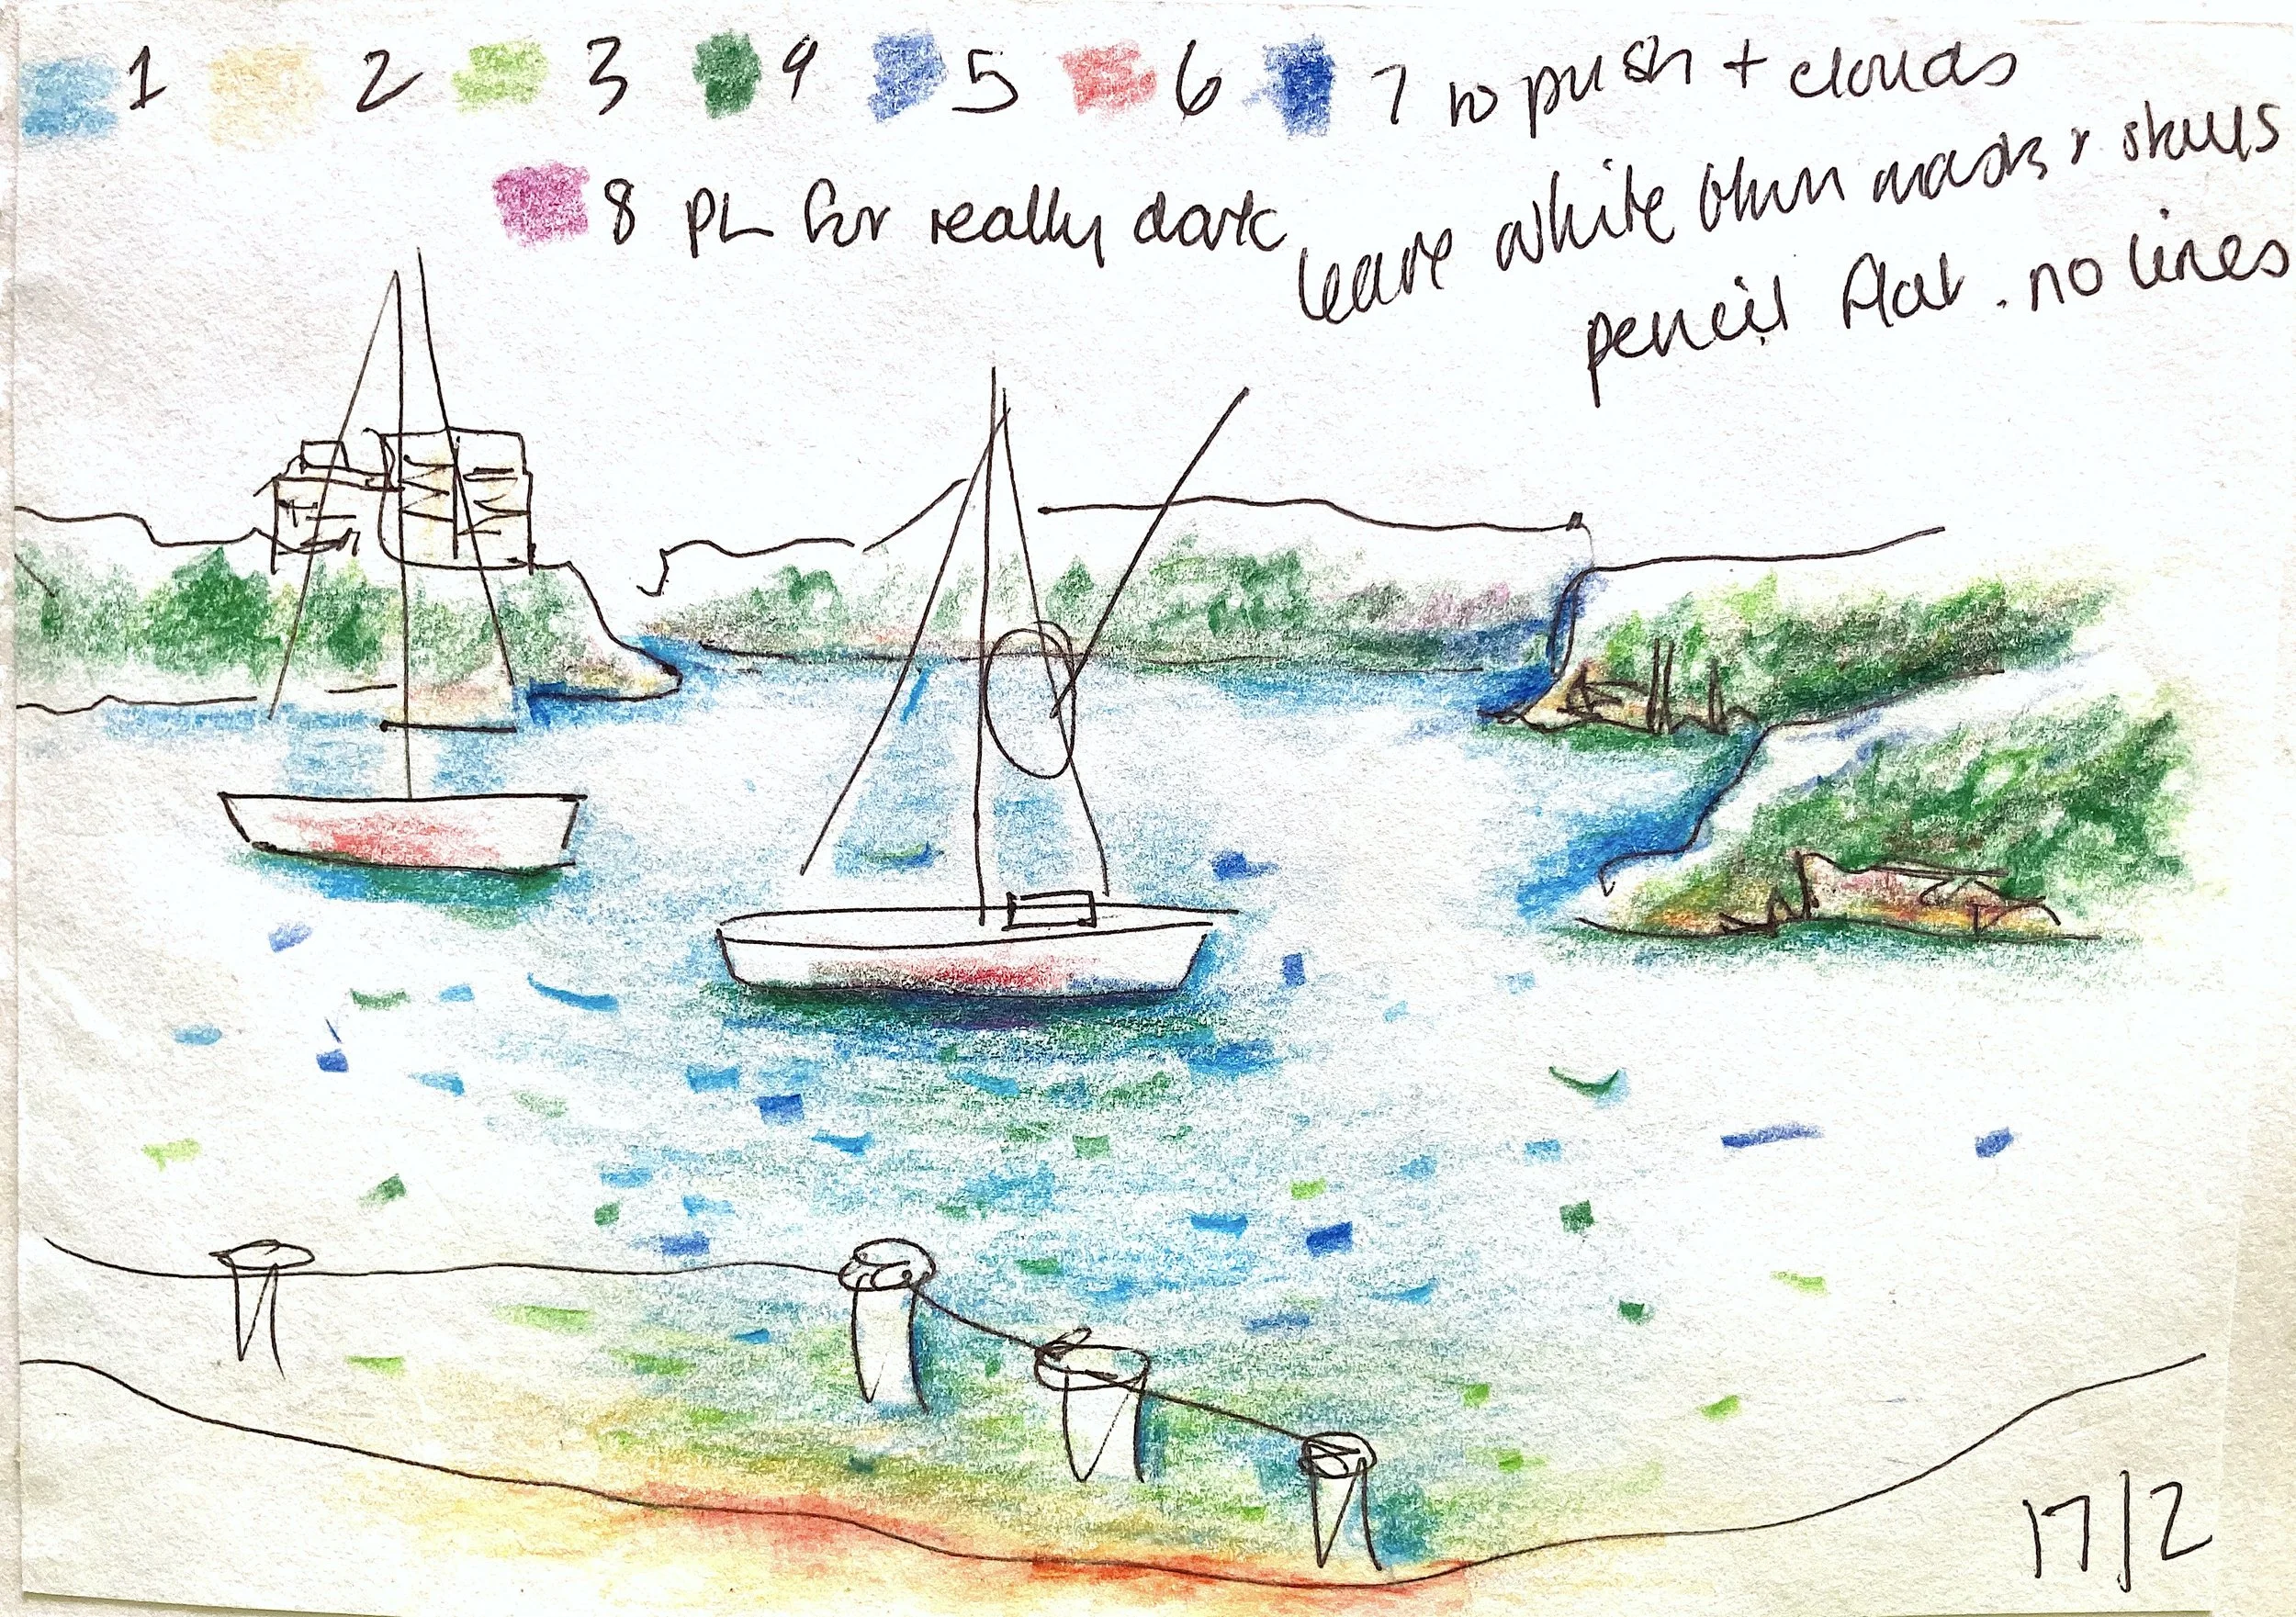 1 2 3 4 5 6 7 to push + clouds
8 PL for really dark
leave white btwn masts + stays
pencil flat. no lines
17/2